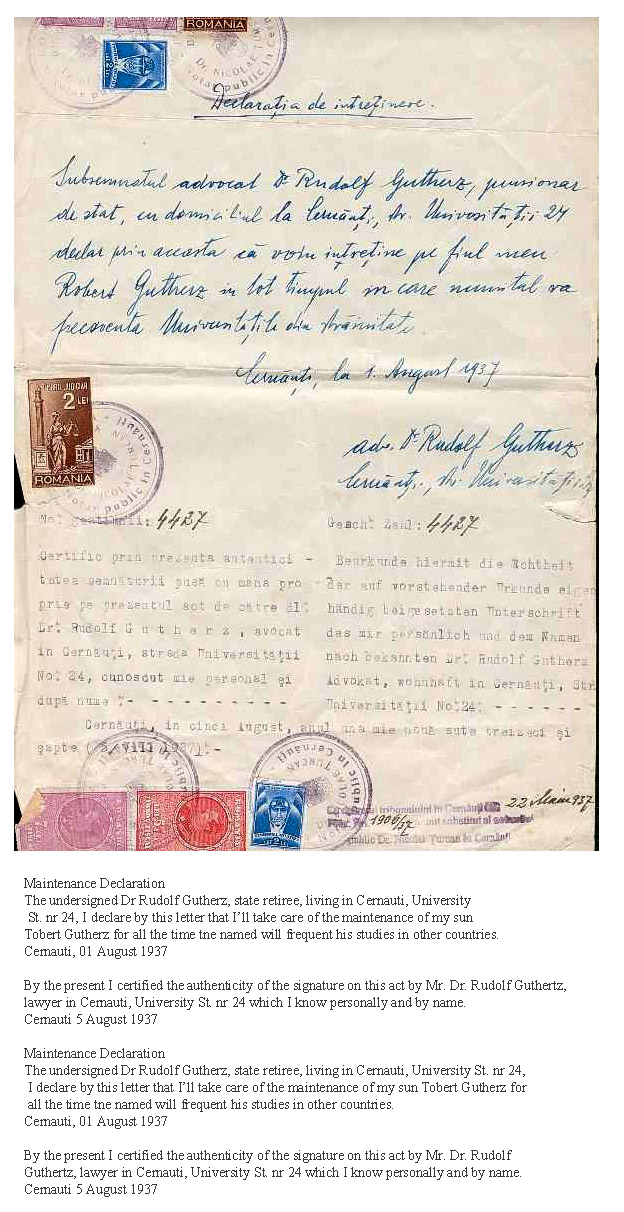 Declarația de intreținere.
Subsemnatul advocat Dr Rudolf Gutherz, pensionar
de stat, cu domiciliul la Cernăuți, str. Universității 24
declar prin aceasta că voiu intreține pe fiul meu
Robert Gutherz in tot timpul in care numitul va
frecventa Universitățile din străinătate.
Cernăuți, la 1. August 1937
adv. Dr Rudolf Gutherz
Cernăuți, str. Universității
TIMBRU JUDICIAR
2 LEI
ROMANIA
4427
Certific prin prezenta autentici -
tatea semnăturii pusă cu mana pro
prie pe prezentul act de către dl.
Dr. Rudolf G u t h e r z , avocat
in Cernăuți, strada Universității
No. 24, cunoscut mie personal și
după nume .- - - - - - - - - - - -
Gesch. Zahl: 4427
Beurkunde hiermit die Echtheit
der auf vorstehender Urkunde eigen
händig beigesetzten Unterschrift
des mir persönlich und dem Namen
nach bekannten Dr. Rudolf Gutherz
Advokat, wohnhaft in Cernăuți, Str
Universității No.24. - - - - - -
Cernăuți, in cinci August, anul una mie nouă sute treizeci și
șapte
22 937
1906/37
public Dr. Nicolai Turcan in Cernăuți
Maintenance Declaration
The undersigned Dr Rudolf Gutherz, state retiree, living in Cernauti, University
St. nr 24, I declare by this letter that I’ll take care of the maintenance of my sun
Tobert Gutherz for all the time tne named will frequent his studies in other countries.
Cernauti, 01 August 1937
By the present I certified the authenticity of the signature on this act by Mr. Dr. Rudolf Guthertz,
lawyer in Cernauti, University St. nr 24 which I know personally and by name.
Cernauti 5 August 1937
Maintenance Declaration
The undersigned Dr Rudolf Gutherz, state retiree, living in Cernauti, University St. nr 24,
I declare by this letter that I’ll take care of the maintenance of my sun Tobert Gutherz for
all the time tne named will frequent his studies in other countries.
Cernauti, 01 August 1937
By the present I certified the authenticity of the signature on this act by Mr. Dr. Rudolf
Guthertz, lawyer in Cernauti, University St. nr 24 which I know personally and by name.
Cernauti 5 August 1937